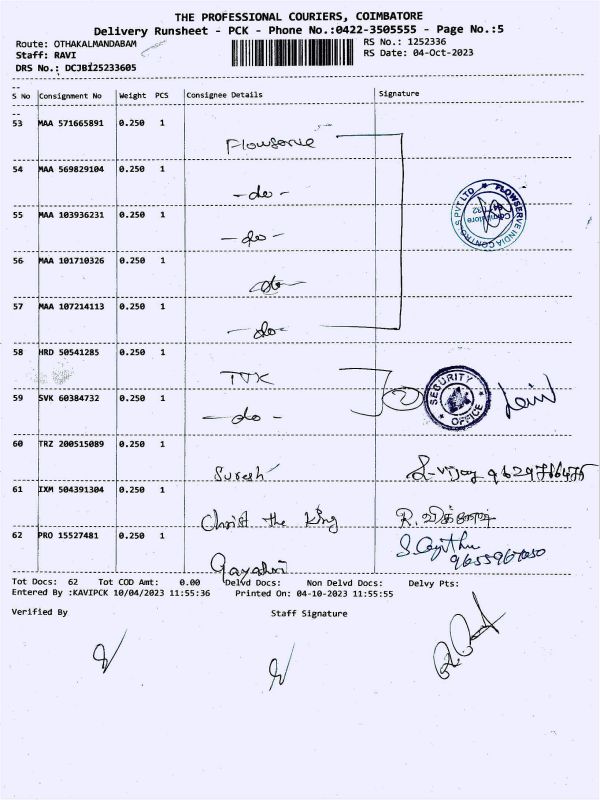 THE PROFESSIONAL COURIERS, COIMBATORE
Delivery Runsheet - PCK - Phone No.:0422-3505555 - Page No.:5
Route: OTHAKALMANDABAM RS No.: 1252336
Staff: RAVI RS Date: 04-Oct-2023
DRS No.: DCJBI25233605
S No Consignment No Weight PCS Consignee Details Signature
53 MAA 571665891 0.250 1
Flowserve
54 MAA 569829104 0.250 1
-do-
55 MAA 103936231 0.250 1
-do-
56 MAA 101710326 0.250 1
do-
57 MAA 107214113 0.250 1
-do-
FLOWSERVE INDIA CONTROLS PVT LTD
Coimbatore
58 HRD 50541285 0.250 1
TVK
59 SVK 60384732 0.250 1
-do-
SECURITY OFFICE
60 TRZ 200515089 0.250 1
Suresh
61 IXM 504391304 0.250 1
Christ the King
62 PRO 15527481 0.250 1
Gayathri
9655967050
Tot Docs: 62 Tot COD Amt: 0.00 Delvd Docs: Non Delvd Docs: Delvy Pts:
Entered By :KAVIPCK 10/04/2023 11:55:36 Printed On: 04-10-2023 11:55:55
Verified By Staff Signature